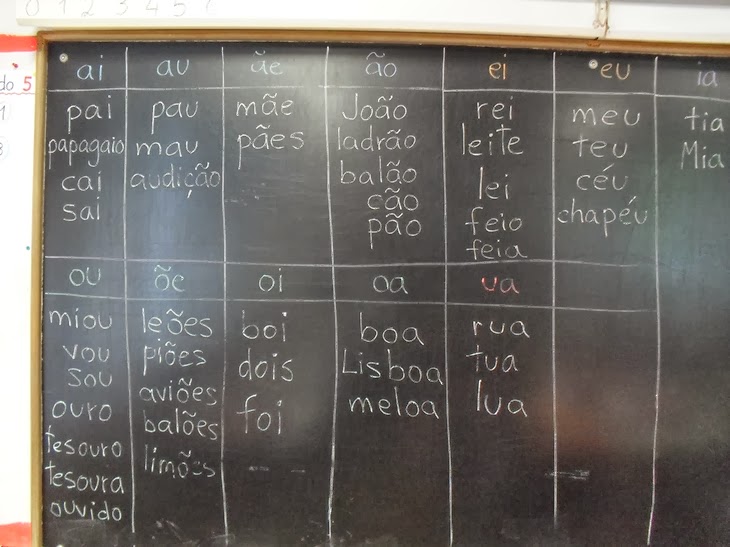 0 1 2 3 4 5
do 5
ai au ãe ão ei eu ia
pai pau mãe João rei meu tia
papagaio mau pães ladrão leite teu Mia
cai audição balão lei céu
sai cão feio chapéu
pão feia
ou õe oi oa ua
miou leões boi boa rua
vou piões dois Lisboa tua
sou aviões foi meloa lua
ouro balões
tesouro limões
tesoura
ouvido